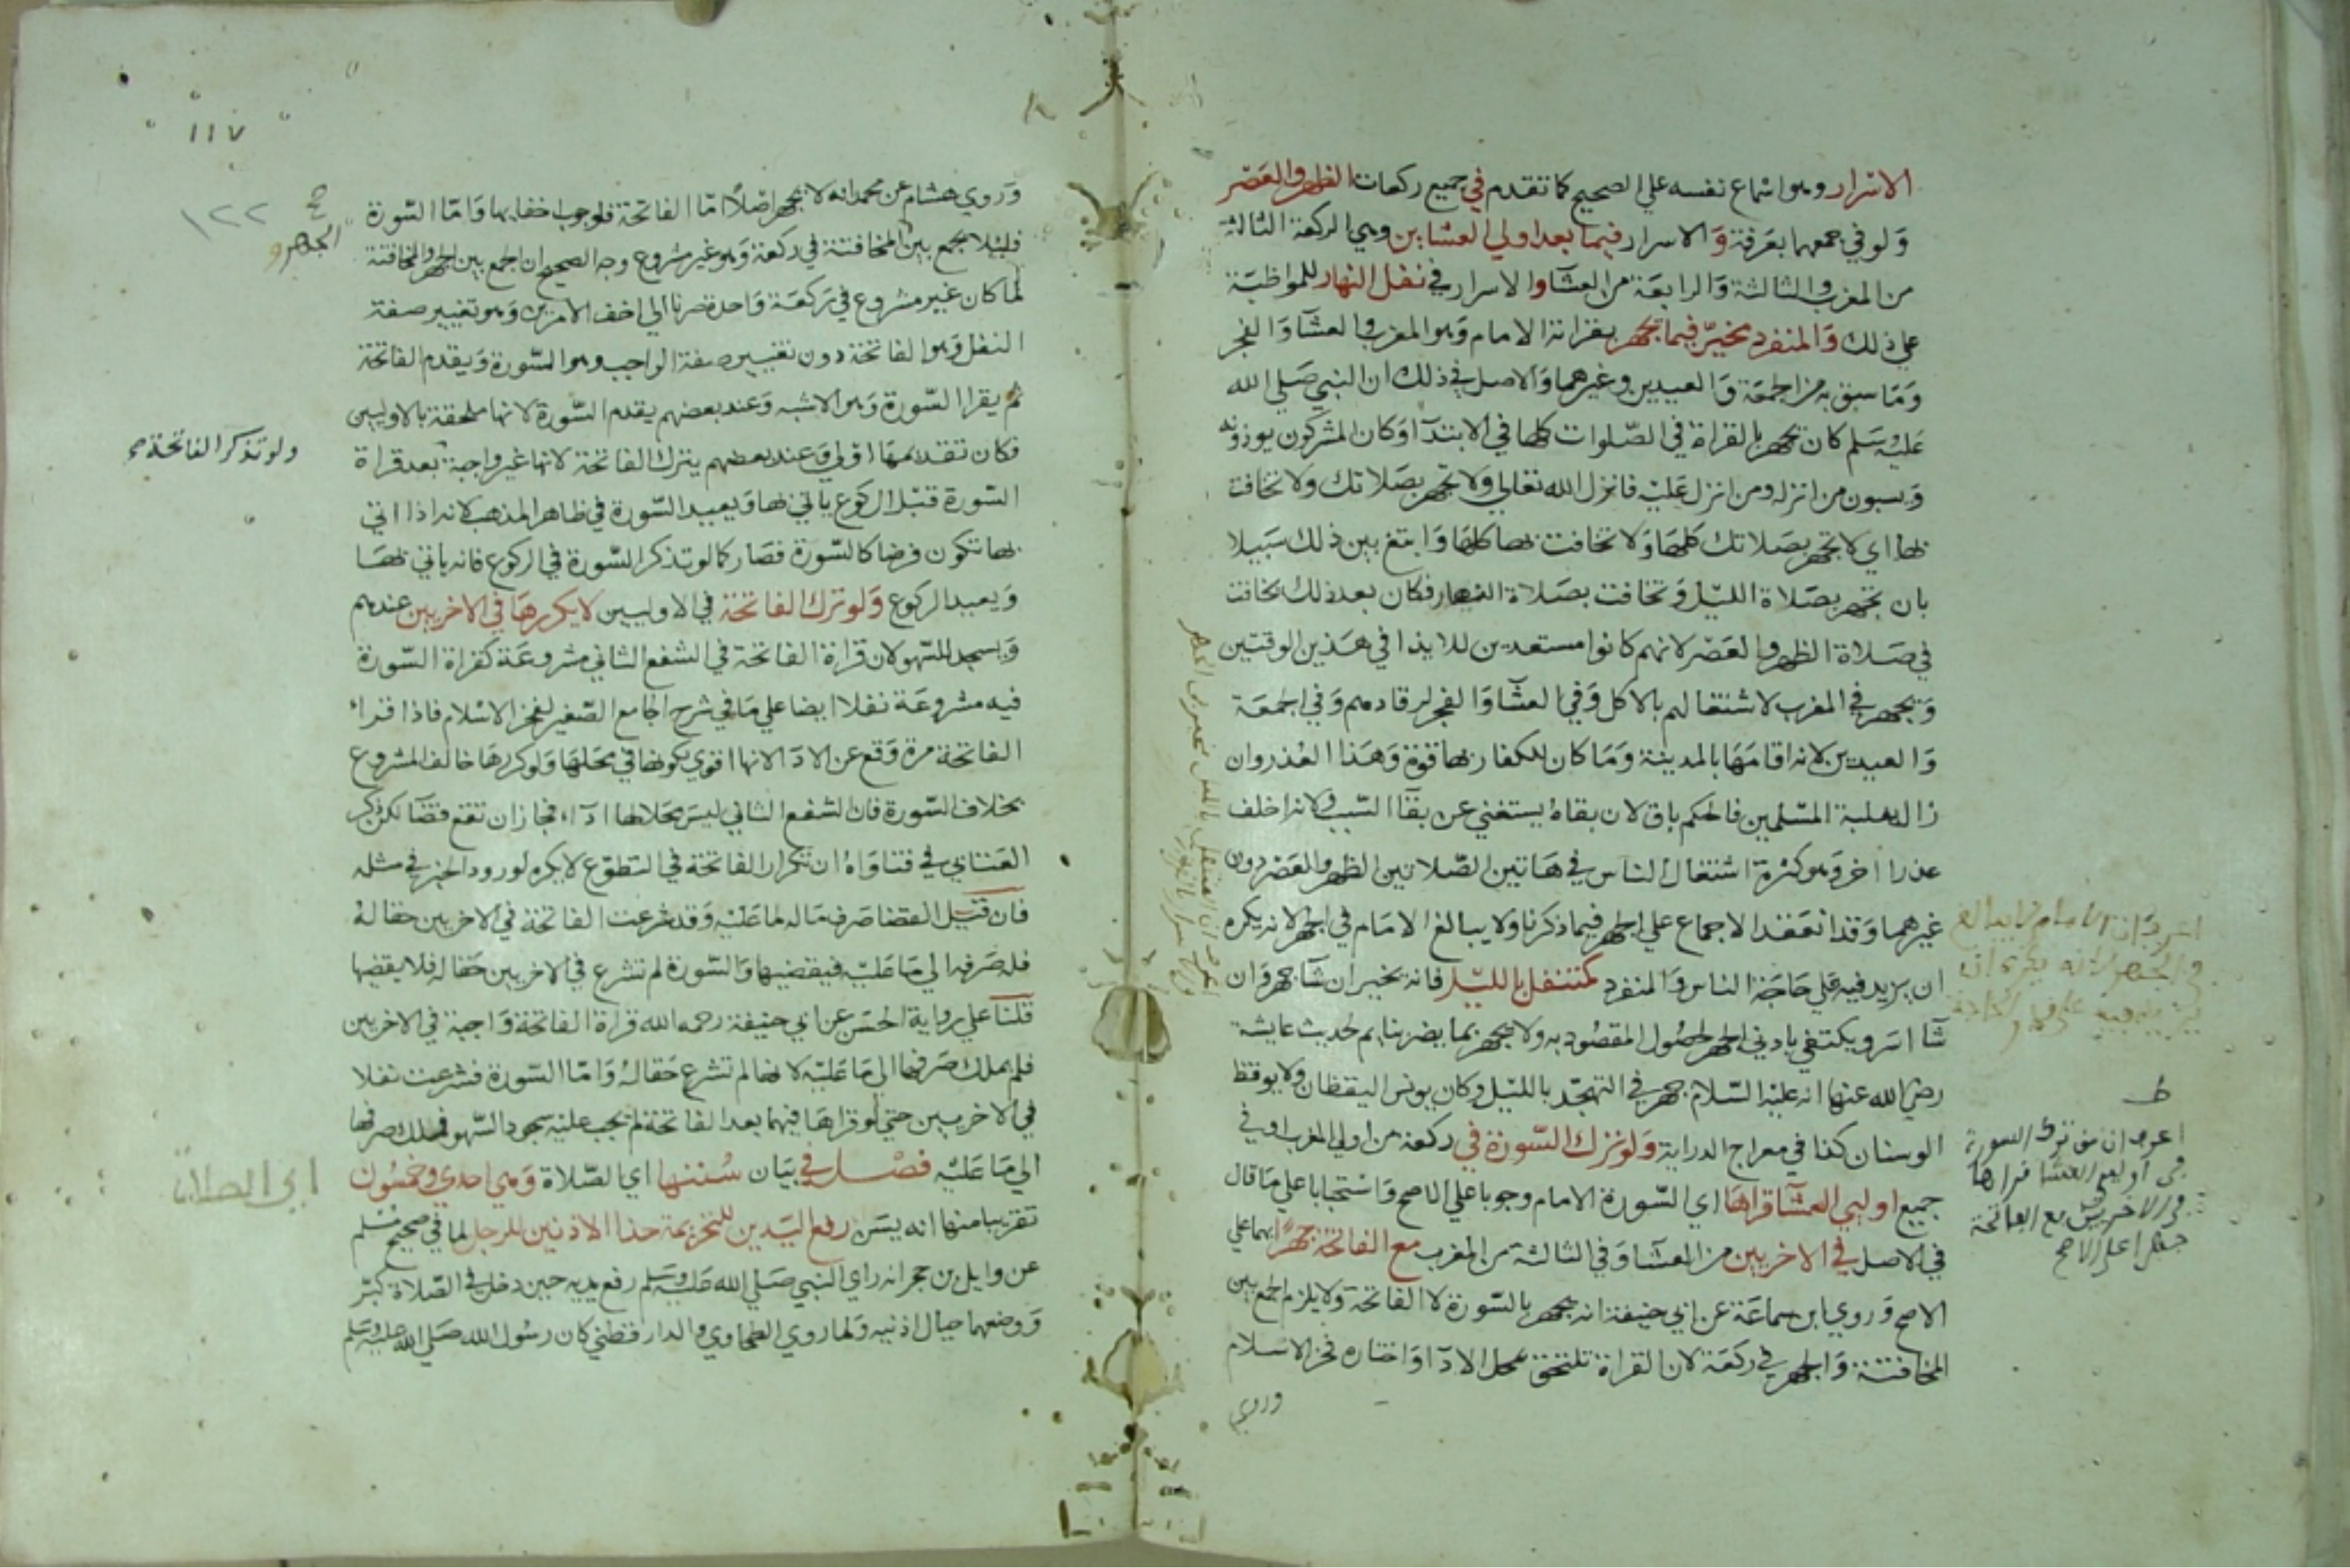 الاسرار وهو اسماع نفسه علي الصحيح كما تقدم في جميع ركعات الظهر والعصر
وَلو في جمعهما بعَرفة وَالاسرار فيما بعد اولي العشاين وهي الركعة الثالثة
من المغرب والثالثة وَالرابعَة من العشآ والاسرار في نفل النهار للمواظبَة
علي ذلك وَالمنفرد مخيّر فيما يجهر بقراته الامام وَهو المغرب والعشآ وَالفجر
وَمَا سبق به من الجمعَة وَالعيدين وغيرهما وَالاصل في ذلك ان النبي صَلي الله
عَليْه سَلم كان يجهر بالقراة في الصّلوات كلها في الابتدآ وَكان المشركون يوذونه
وَيسبون من انزله ومن انزل عَليْه فانزل الله تعالي ولا تجهر بصَلاتك ولا تخافت
بها اي لا تجهر بصَلاتك كلهَا وَلا تخافت بها كلهَا وَابتغ بين ذلك سَبيلا
بان تجهر بصَلاة الليْل وَتخافت بصَلاة النهار فكان بعد ذلك يخافت
في صَلاة الظهر والعَصْر لانهم كانوا مستعدين للايذا في هَذين الوقتين
وَيجهر في المغرب لاشتغالهم بالاكل وَفي العشآ وَالفجر لرقادهم وَفي الجمعَة
وَالعيدين لانه اقامَهَا بالمدينة وَمَا كان للكفار بها قوة وَهَذا العُذر وان
زال بغلبة المسْلمين فالحكم باق لان بقاهُ يستغني عن بقآ السّبب ولانه اخلف
عذرا اخر وَهو كثرة اشتغال الناس في هَاتين الصّلاتين الظهر والعَصْر دون
غيرهما وَقد انعَقد الاجماع علي الجهر فيما ذكرنا ولا يبالغ الامَام في الجهر لانه يكره
ان يزيد فيه علي حَاجَة الناس وَالمنفرد كمتنفل بالليْل فانه يخير ان شآ جهر وَان
شآ اسَر ويكتفي بادني الجهر لحصُول المقصُود به ولا يجهر بما يضر بنايم لحديث عايشة
رضي الله عنها انه عليْه السّلام جهر في التهجّد بالليْل وكان يونس اليقظان ولا يوقظ
الوسنان كذا في معراج الدراية وَلو ترك السّورة في ركعة من اولي المغرب او في
جميع اوليي العشآ قراهَا اي السّورة الامام وجوبا علي الاصح وَاسْتحبابا علي مَا قال
في الاصل في الاخريين من العشآ وَفي الثالثة من المغرب مع الفاتحة جهرًا بهما علي
الاصح وَروي ابن سماعَة عن ابي حنيفة انه يجهر بالسّورة لا الفاتحة وَلا يلزم الجمع بين
المخافتة وَالجهر في ركعَة لان القراة تلتحق بمحل الادآ وَاختاره فخر الاسْلام
وروي
اعرف ان من ترك السورة
في اوليي العشا قراها
في الاخريين مع الفاتحة
جهرا علي الاصح
١١٧
١٢٢
وَروي هشام عن محمد انه لا يجهر اصْلاً امّا الفاتحة فلوجوب اخفايها وَامّا السّورة
فليلا يجمع بين المخافتة في ركعة وَهو غير مشروع وجه الصحيح ان الجمع بين الجهر والمخافتة
الجهر و
لما كان غير مشروع في رَكعَة وَاحدة صرنا الي اخف الامرين وَهو تغيير صفة
النفل وَهو الفاتحة دون تغيير صفة الواجب وهو السّورة وَيقدم الفاتحة
ثم يقرا السّورة وَهو الاشبه وَعند بعضهم يقدم السّورة لانها ملحقة بالاوليين
فكان تقديمهَا اوْلي وَعند بعضهم يترك الفاتحة لانها غير واجبة بعد قراة
ولو تذكر الفاتحة صح
السّورة قبْل الركوع ياتي بها وَيعيد السّورة في ظاهر المذهب لانه اذا اتي
بها تكون فرضا كالسّورة فصَار كما لو تذكر السّورة في الركوع فانه ياتي بهَا
وَيعيد الركوع وَلو ترك الفاتحة في الاوليين لا يكررهَا في الاخريين عندهم
وَيسجد للسّهو لان قراة الفاتحة في الشفع الثاني مشروعَة كقراة السّورة
فيه مشروعَة نفلا ايضا علي مَا في شرح الجامع الصّغير لفخر الاسْلام فاذا قراء
الفاتحة مرة وَقع عن الادَآ لانها اقوي لكونها في محَلهَا وَلو كررهَا خالف المشروع
بخلاف السّورة فان الشفع الثاني ليسَ محَلا لها ادآء فجاز ان تقع قضَآ لكن ذكر
العتابي في فتاوَاهُ ان تكرار الفاتحة في التطوّع لا يكره لورود الخبر في مثله
فان قيْل القضا صَرف مَاله لما عَليْه وَقد شرعت الفاتحة في الاخريين حقا لهُ
فله صَرفه الي مَا عَليْه فيقضيها وَالسّورة لم تشرع في الاخريين حَقا له فلا يقضيها
قلنَا علي رواية الحسَن عن ابي حنيفة رحمه الله قراة الفاتحة وَاجبة في الاخريين
فلم يملك صَرفها الي مَا عَليْه لانها لم تشرع حَقا لهُ وَامّا السّورة فشرعت نفلا
في الاخريين حتي لو قراهَا فيهما بعد الفاتحة لم يجب عليْه سجود السّهو فملك صرفها
الي مَا عَليْه فصْل في بيَان سُننها اي الصّلاة وَهي احدي وخمسُون
اي الصلاة
تقريبا منها انه يسَن رفع اليَدين للتحريمة حذا الاذنين للرجل لما في صحيح مسْلم
عن وايل بن حجر انه راي النبي صَلي الله عَليْه وسَلم رفع يديه حين دخل في الصّلاة كبّر
وَوضعهما حيال اذنيه وَلما روي الطحاوي والدارقطني كان رسُول الله صَلي الله عليه وسَلم